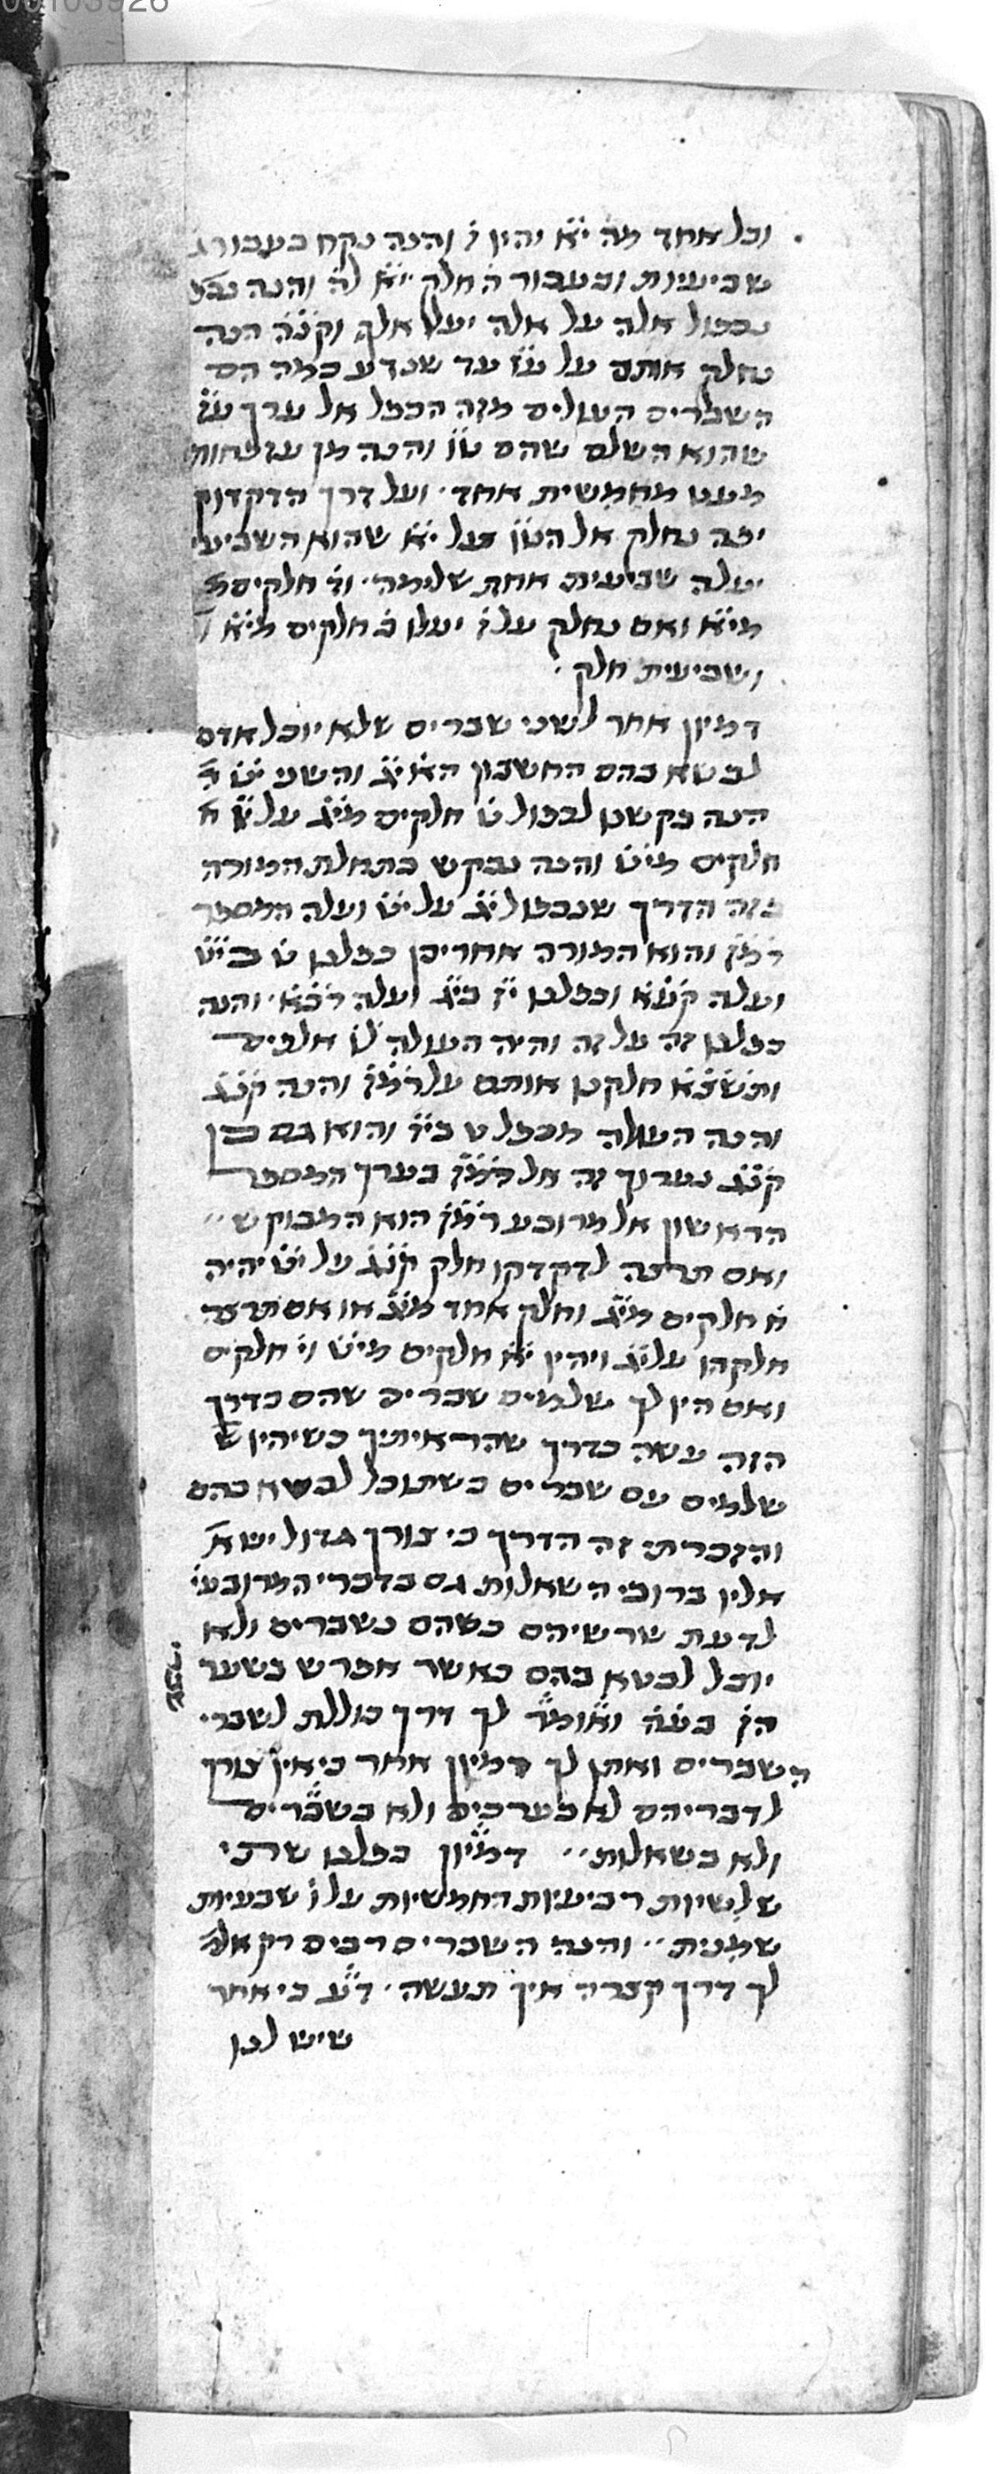 וכל אחד מה יא יהיו ז והנה נקח בעבור ג
שביעיות ובעבור ה חלק יא לה והנה
נכפול אלה על אלה יעלו אלף וקנה הנה
נחלק אותם על עז עד שנדע כמה הם
השברים העולים מזה הכפל אל ערך עז
שהוא השלם שהם טו והנה מן עז פחות
מעט מחמשית אחד ועל דרך הדקדוק
יפה נחלק אל הטו על יא שהוא השביעי
יעלה שביעית אחת שלימה וד חלקים
מיא ואם נחלק על ז יעלו ב חלקים מיא
ושביעית חלק
דמיון אחר לשני שברים שלא יוכל אדם
לבטא בהם החשבון הא יג והשני יט
הנה בקשנו לכפול ט חלקים מיג על
חלקים מיט והנה נבקש בתחלת המורה
בזה הדרך שנכפול יג על יט ועלה המספר
רמז והוא המורה אחרי כן כפלנו ט ביט
ועלה קעא וכפלנו יז ביג ועלה רכא והנה
כפלנו זה על זה והיה העולה לז אלפים
ותשצא חלקנו אותם על רמז והנה קנג
והנה העולה מכפל ט ביז והוא גם כן
קנג נערוך זה אל רמז כערך המספר
הראשון אל מרובע רמז הוא המבוקש
ואם תרצה לדקדקו חלק קנג על יט יהיה
ח חלקים מיג וחלק אחד מיג או אם תרצה
חלקהו על יג ויהיו יא חלקים מיט וי חלקים
ואם היו לך שלמים שברים שהם כדרך
הזה עשה כדרך שהראיתיך כשיהיו
שלמים עם שברים כשתוכל לבטא בהם
והזכרתי זה הדרך כי צורך גדול יש
אלין ברובי השאלות גם בדברי המרובעי
לדעת שרשיהם כשהם כשברים ולא
יוכל לבטא בהם כאשר אפרש בשער
הז בעה ואומר לך דרך כוללת לשברי
השברים ואתן לך דמיון אחר כי אין צורך
לדבריהם לא בערכים ולא בשברים
ולא בשאלות דמיון כפלנו שתי
שלישיות רביעיות החמשיות על ו שבעיות
שמנית והנה השברים רבים רק אלה
לך דרך קצרה איך תעשה דע כי אחר
שיש לנו